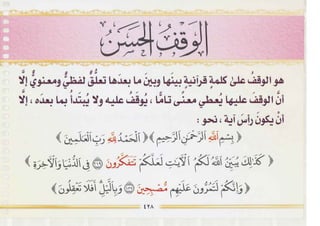 الوَقفُ الحَسَن
هو الوقفُ علىٰ كلمةٍ قرآنيةٍ بينَها وبينَ ما بعدَها تعلُّقٌ لفظيٌّ ومعنويٌّ إلَّا
أنَّ الوقفَ عليها يُعطي معنًى تامًّا ، يُوقَفُ عليه ولا يُبتدَأُ بما بعدَه ، إلَّا
أنْ يكونَ رأسَ آية ، نحو :
﴿ بِسْمِ ٱللَّهِ ٱلرَّحْمَٰنِ ٱلرَّحِيمِ ﴾ ﴿ ٱلْحَمْدُ لِلَّهِ رَبِّ ٱلْعَٰلَمِينَ ﴾
﴿ كَذَٰلِكَ يُبَيِّنُ ٱللَّهُ لَكُمُ ٱلْءَايَٰتِ لَعَلَّكُمْ تَتَفَكَّرُونَ ۝ فِى ٱلدُّنْيَا وَٱلْءَاخِرَةِ ﴾
﴿ وَإِنَّكُمْ لَتَمُرُّونَ عَلَيْهِم مُّصْبِحِينَ ۝ وَبِٱلَّيْلِ أَفَلَا تَعْقِلُونَ ﴾
٤٢٨